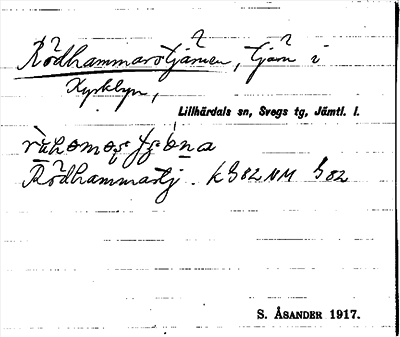 Rödhammarstjärnen, tjärn i
Kyrkbyn,
Lillhärdals sn, Svegs tg, Jämtl. l.
Rödhammartj. k G82 NM G82
S. ÅSANDER 1917.